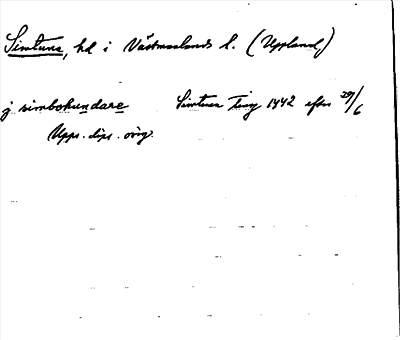 Simtuna, hd i Västmanlands l. (Uppland)
j simbohundare Simtuna ting 1442 efter 29/6
Upps. dipl. orig.